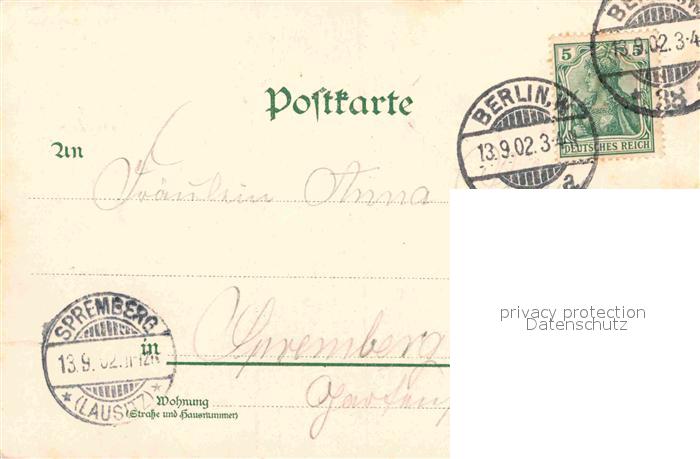 BERLIN, W.
13.9.02.3-4
38
5 5
DEUTSCHES REICH
BERLIN, W.
13.9.02.3-4
a.
Postkarte
An
Fräulein Anna
privacy protection
Datenschutz
SPREMBERG
13.9.02.
* (LAUSITZ) *
in Spremberg
Wohnung
(Straße und Hausnummer)